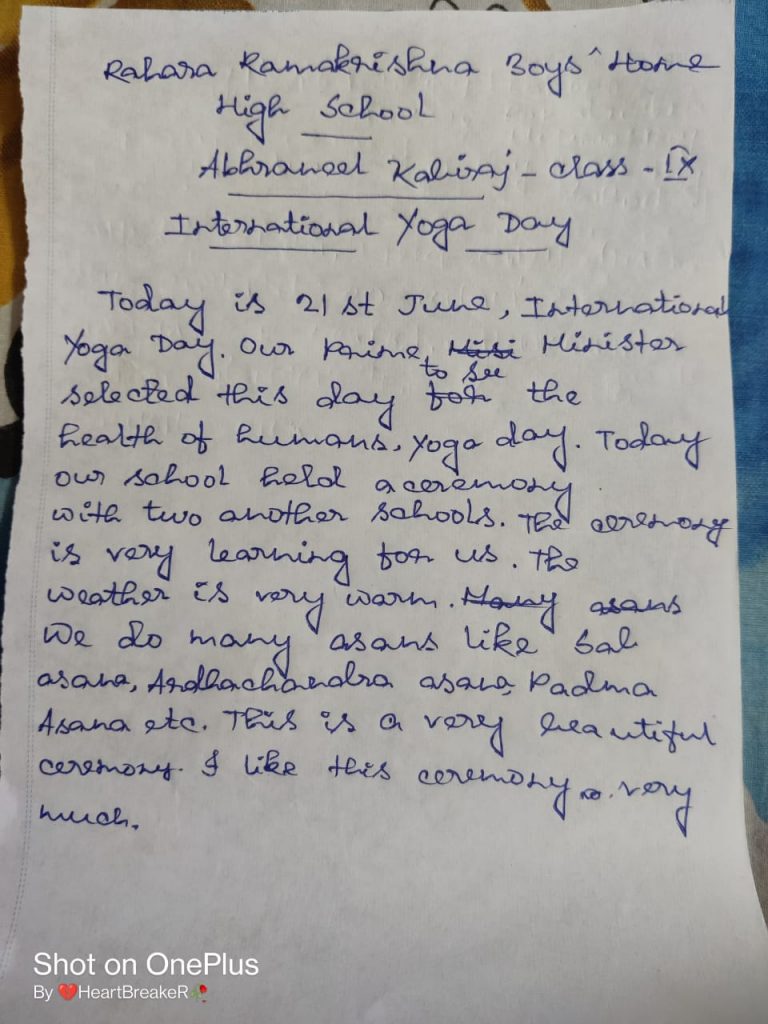 Rahara Ramakrishna Boys' Home
High School
Abhraneel Kabiraj - class - IX
International Yoga Day
Today is 21st June, International
Yoga Day. Our Prime Minister
to see
selected this day the
health of humans, yoga day. Today
our school held a ceremony
with two another schools. The ceremony
is very learning for us. The
weather is very warm.
We do many asans like Bal
asana, Ardhachandra asana, Padma
Asana etc. This is a very beautiful
ceremony. I like this ceremony very
much.
Shot on OnePlus
By ❤️HeartBreakeR🥀